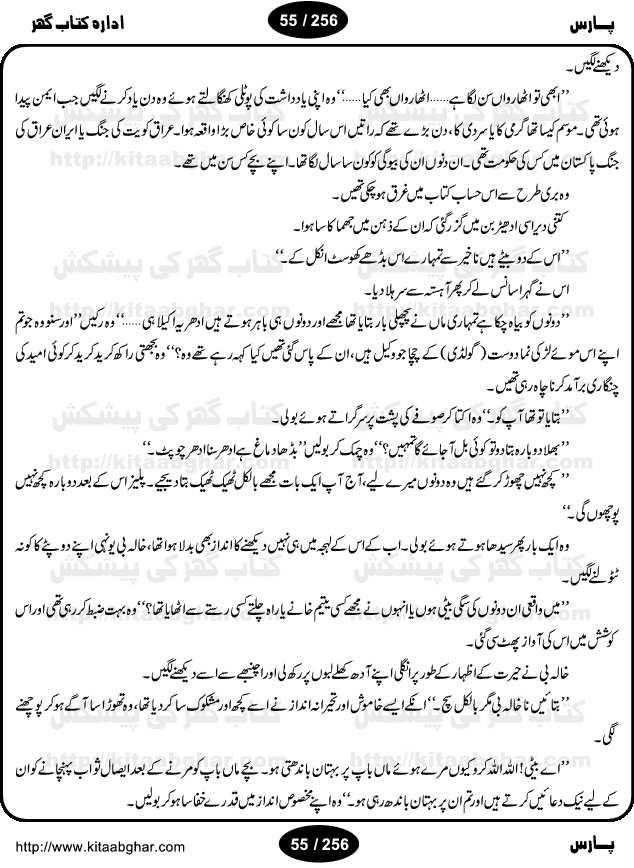 پارس 55 / 256 ادارہ کتاب گھر
دیکھنے لگیں۔
’’ابھی تو اٹھارواں سن لگا ہے......اٹھارواں بھی کیا......‘‘ وہ اپنی یادداشت کی پوٹلی کھنگالتے ہوئے وہ دن یاد کرنے لگیں جب ایمن پیدا
ہوئی تھی۔ موسم کیسا تھا گرمی کا یا سردی کا، دن بڑے تھے کہ راتیں اس سال کون سا کوئی خاص بڑا واقعہ ہوا۔ عراق کویت کی جنگ یا ایران عراق کی
جنگ پاکستان میں کس کی حکومت تھی۔ ان دنوں ان کی بیوگی کو کون سا سال لگا تھا۔ اپنے بچے کس سن میں تھے۔
وہ بری طرح سے اس حساب کتاب میں غرق ہو چکی تھیں۔
کتنی دیر اسی ادھیڑ بن میں گزر گئی کہ ان کے ذہن میں جھماکا سا ہوا۔
’’اس کے دو بیٹے ہیں نا خیر سے تمہارے اس بڈھے کھوسٹ انکل کے۔‘‘
اس نے گہرا سانس لے کر پھر آہستہ سے سر ہلا دیا۔
’’دونوں کو بیاہ چکا ہے تمہاری ماں نے پچھلی بار بتایا تھا مجھے اور دونوں ہی باہر ہوتے ہیں ادھر یہ اکیلا ہی......‘‘ وہ رکیں ’’اور سنو وہ جو تم
اپنے اس موئے لڑکی نما دوست (گولڈی) کے چچا جو وکیل ہیں، ان کے پاس گئی تھیں کیا کہہ رہے تھے وہ؟‘‘ وہ بجھتی راکھ کرید کرید کر کوئی امید کی
چنگاری برآمد کرنا چاہ رہی تھیں۔
’’بتایا تو تھا آپ کو۔‘‘ وہ اکتا کر صوفے کی پشت پر سر گراتے ہوئے بولی۔
’’بھلا دوبارہ بتا دو تو کوئی بل آ جائے گا تمہیں؟‘‘ وہ چمک کر بولیں ’’بڈھا دماغ ہے ادھر سنا ادھر چوپٹ۔‘‘
’’کچھ نہیں چھوڑ کر گئے ہیں وہ دونوں میرے لیے، آج آپ ایک بات مجھے بالکل ٹھیک ٹھیک بتا دیجیے۔ پلیز اس کے بعد دوبارہ کچھ نہیں
پوچھوں گی۔‘‘
وہ ایک بار پھر سیدھا ہوتے ہوئے بولی۔ اب کے اس کے لہجہ میں ہی نہیں دیکھنے کا انداز بھی بدلا ہوا تھا، خالہ بی یونہی اپنے دوپٹے کا کونہ
ٹٹولنے لگیں۔
’’میں واقعی ان دونوں کی سگی بیٹی ہوں یا انہوں نے مجھے کسی یتیم خانے یا راہ چلتے کسی رستے سے اٹھایا تھا؟‘‘ وہ بہت ضبط کر رہی تھی اور اس
کوشش میں اس کی آواز پھٹ سی گئی۔
خالہ بی نے حیرت کے اظہار کے طور پر انگلی اپنے آدھ کھلے لبوں پر رکھ لی اور اچنبھے سے اسے دیکھنے لگیں۔
’’بتائیں نا خالہ بی مگر بالکل سچ۔‘‘ انکے ایسے خاموش اور تحیرانہ انداز نے اسے کچھ اور مشکوک سا کر دیا تھا، وہ تھوڑا سا آگے ہو کر پوچھنے
لگی۔
’’اے بیٹی! اللہ اللہ کرو کیوں مرے ہوئے ماں باپ پر بہتان باندھتی ہو۔ بچے ماں باپ کو مرنے کے بعد ایصال ثواب پہنچانے کو ان
کے لیے نیک دعائیں کرتے ہیں اور تم ان پر بہتان باندھ رہی ہو۔‘‘ وہ اپنے مخصوص انداز میں قدرے خفا سا ہو کر بولیں۔
پارس 55 / 256 http://www.kitaabghar.com